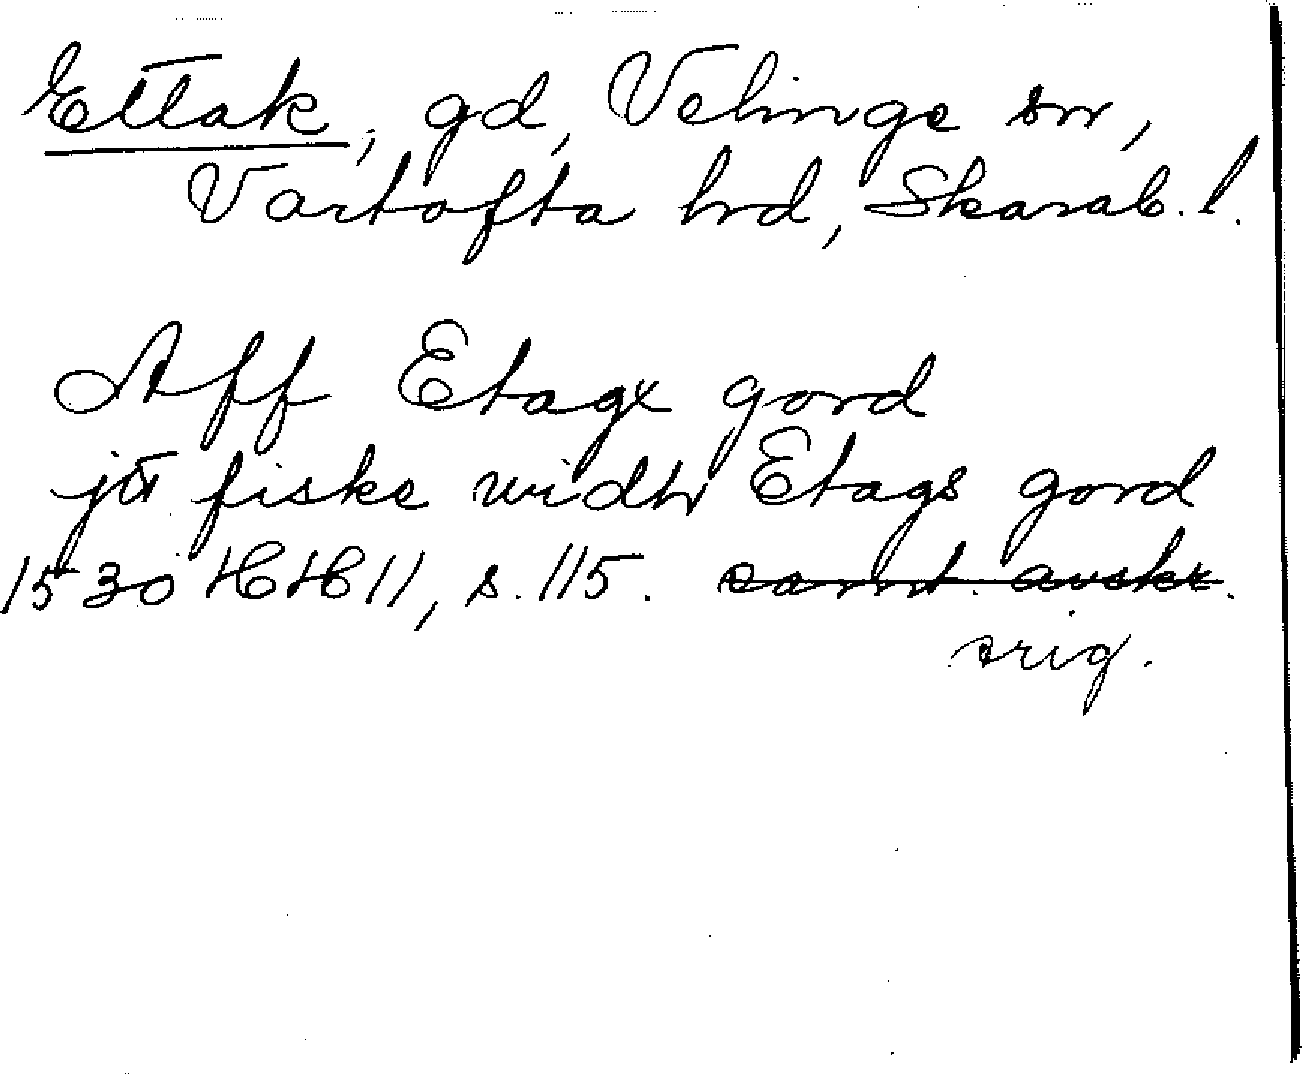 Ettak, gd, Velinge sn,
Vartofta hrd, Skarab. l.
Aff Etagx gord
jtt fiske widh Etags gord
1530 HH 11, s. 115. samt. avskr.
orig.